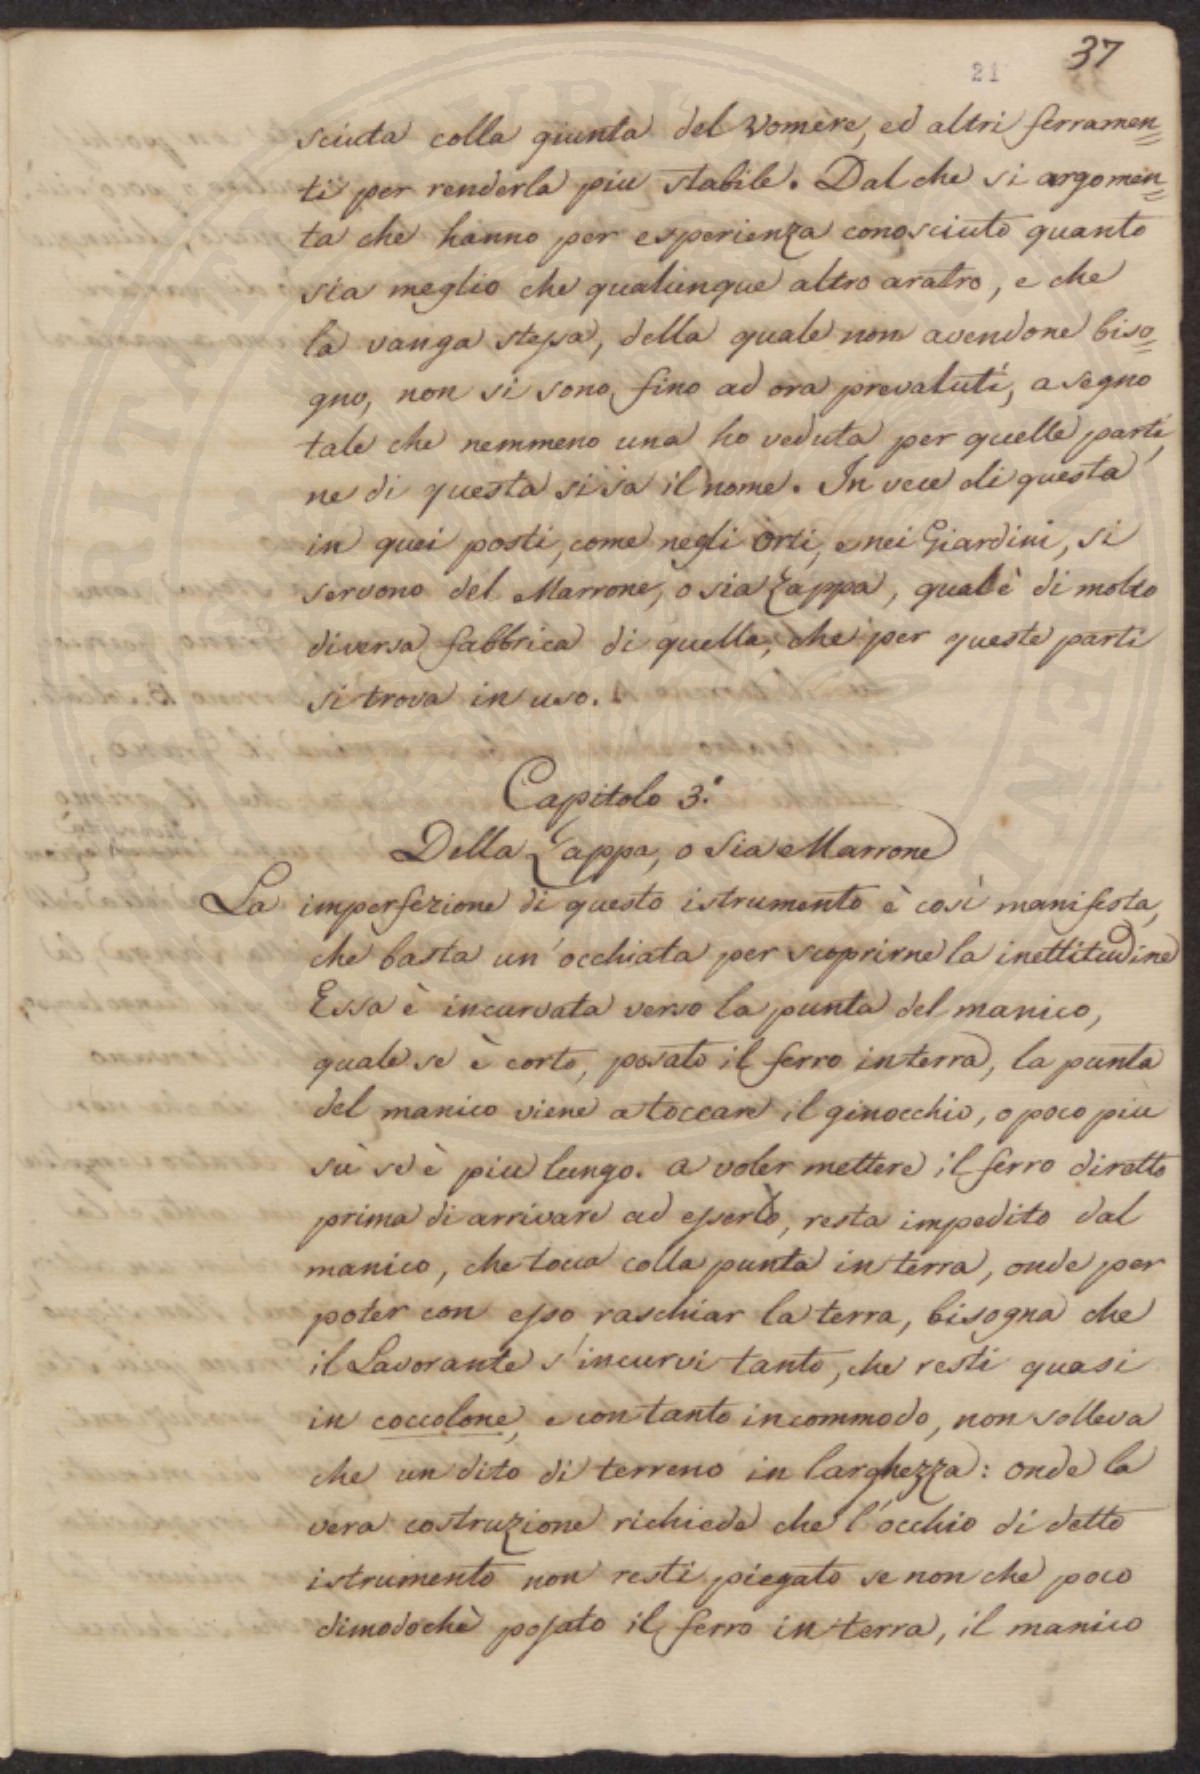 37
21
sciuta colla giunta del Vomere, ed altri ferramen=
ti per renderla piu stabile. Dal che si argomen=
ta che hanno per esperienza conosciuto quanto
sia meglio che qualunque altro aratro, e che
la vanga stessa, della quale non avendone biso=
gno, non si sono fino ad ora prevaluti, a segno
tale che nemmeno una ho veduta per quelle parti,
ne di questa si sa il nome. In vece di questa
in quei posti, come negli Orti, e nei Giardini, si
servono del Marrone, o sia Zappa, qual è di molto
diversa fabbrica di quella, che per queste parti
si trova in uso.
Capitolo 3.°
Della Zappa, o sia Marrone
La imperfezione di questo istrumento è così manifesta,
che basta un'occhiata per scoprirne la inettitudine
Essa è incurvata verso la punta del manico,
quale se è corto, posato il ferro in terra, la punta
del manico viene a toccare il ginocchio, o poco piu
sù se è piu lungo. a voler mettere il ferro diretto
prima di arrivare ad esserlo, resta impedito dal
manico, che tocca colla punta in terra, onde per
poter con esso raschiar la terra, bisogna che
il Lavorante s'incurvi tanto, che resti quasi
in coccolone, e con tanto incommodo, non solleva
che un dito di terreno in larghezza: onde la
vera costruzione richiede che l'occhio di detto
istrumento non resti piegato se non che poco
dimodochè posato il ferro in terra, il manico